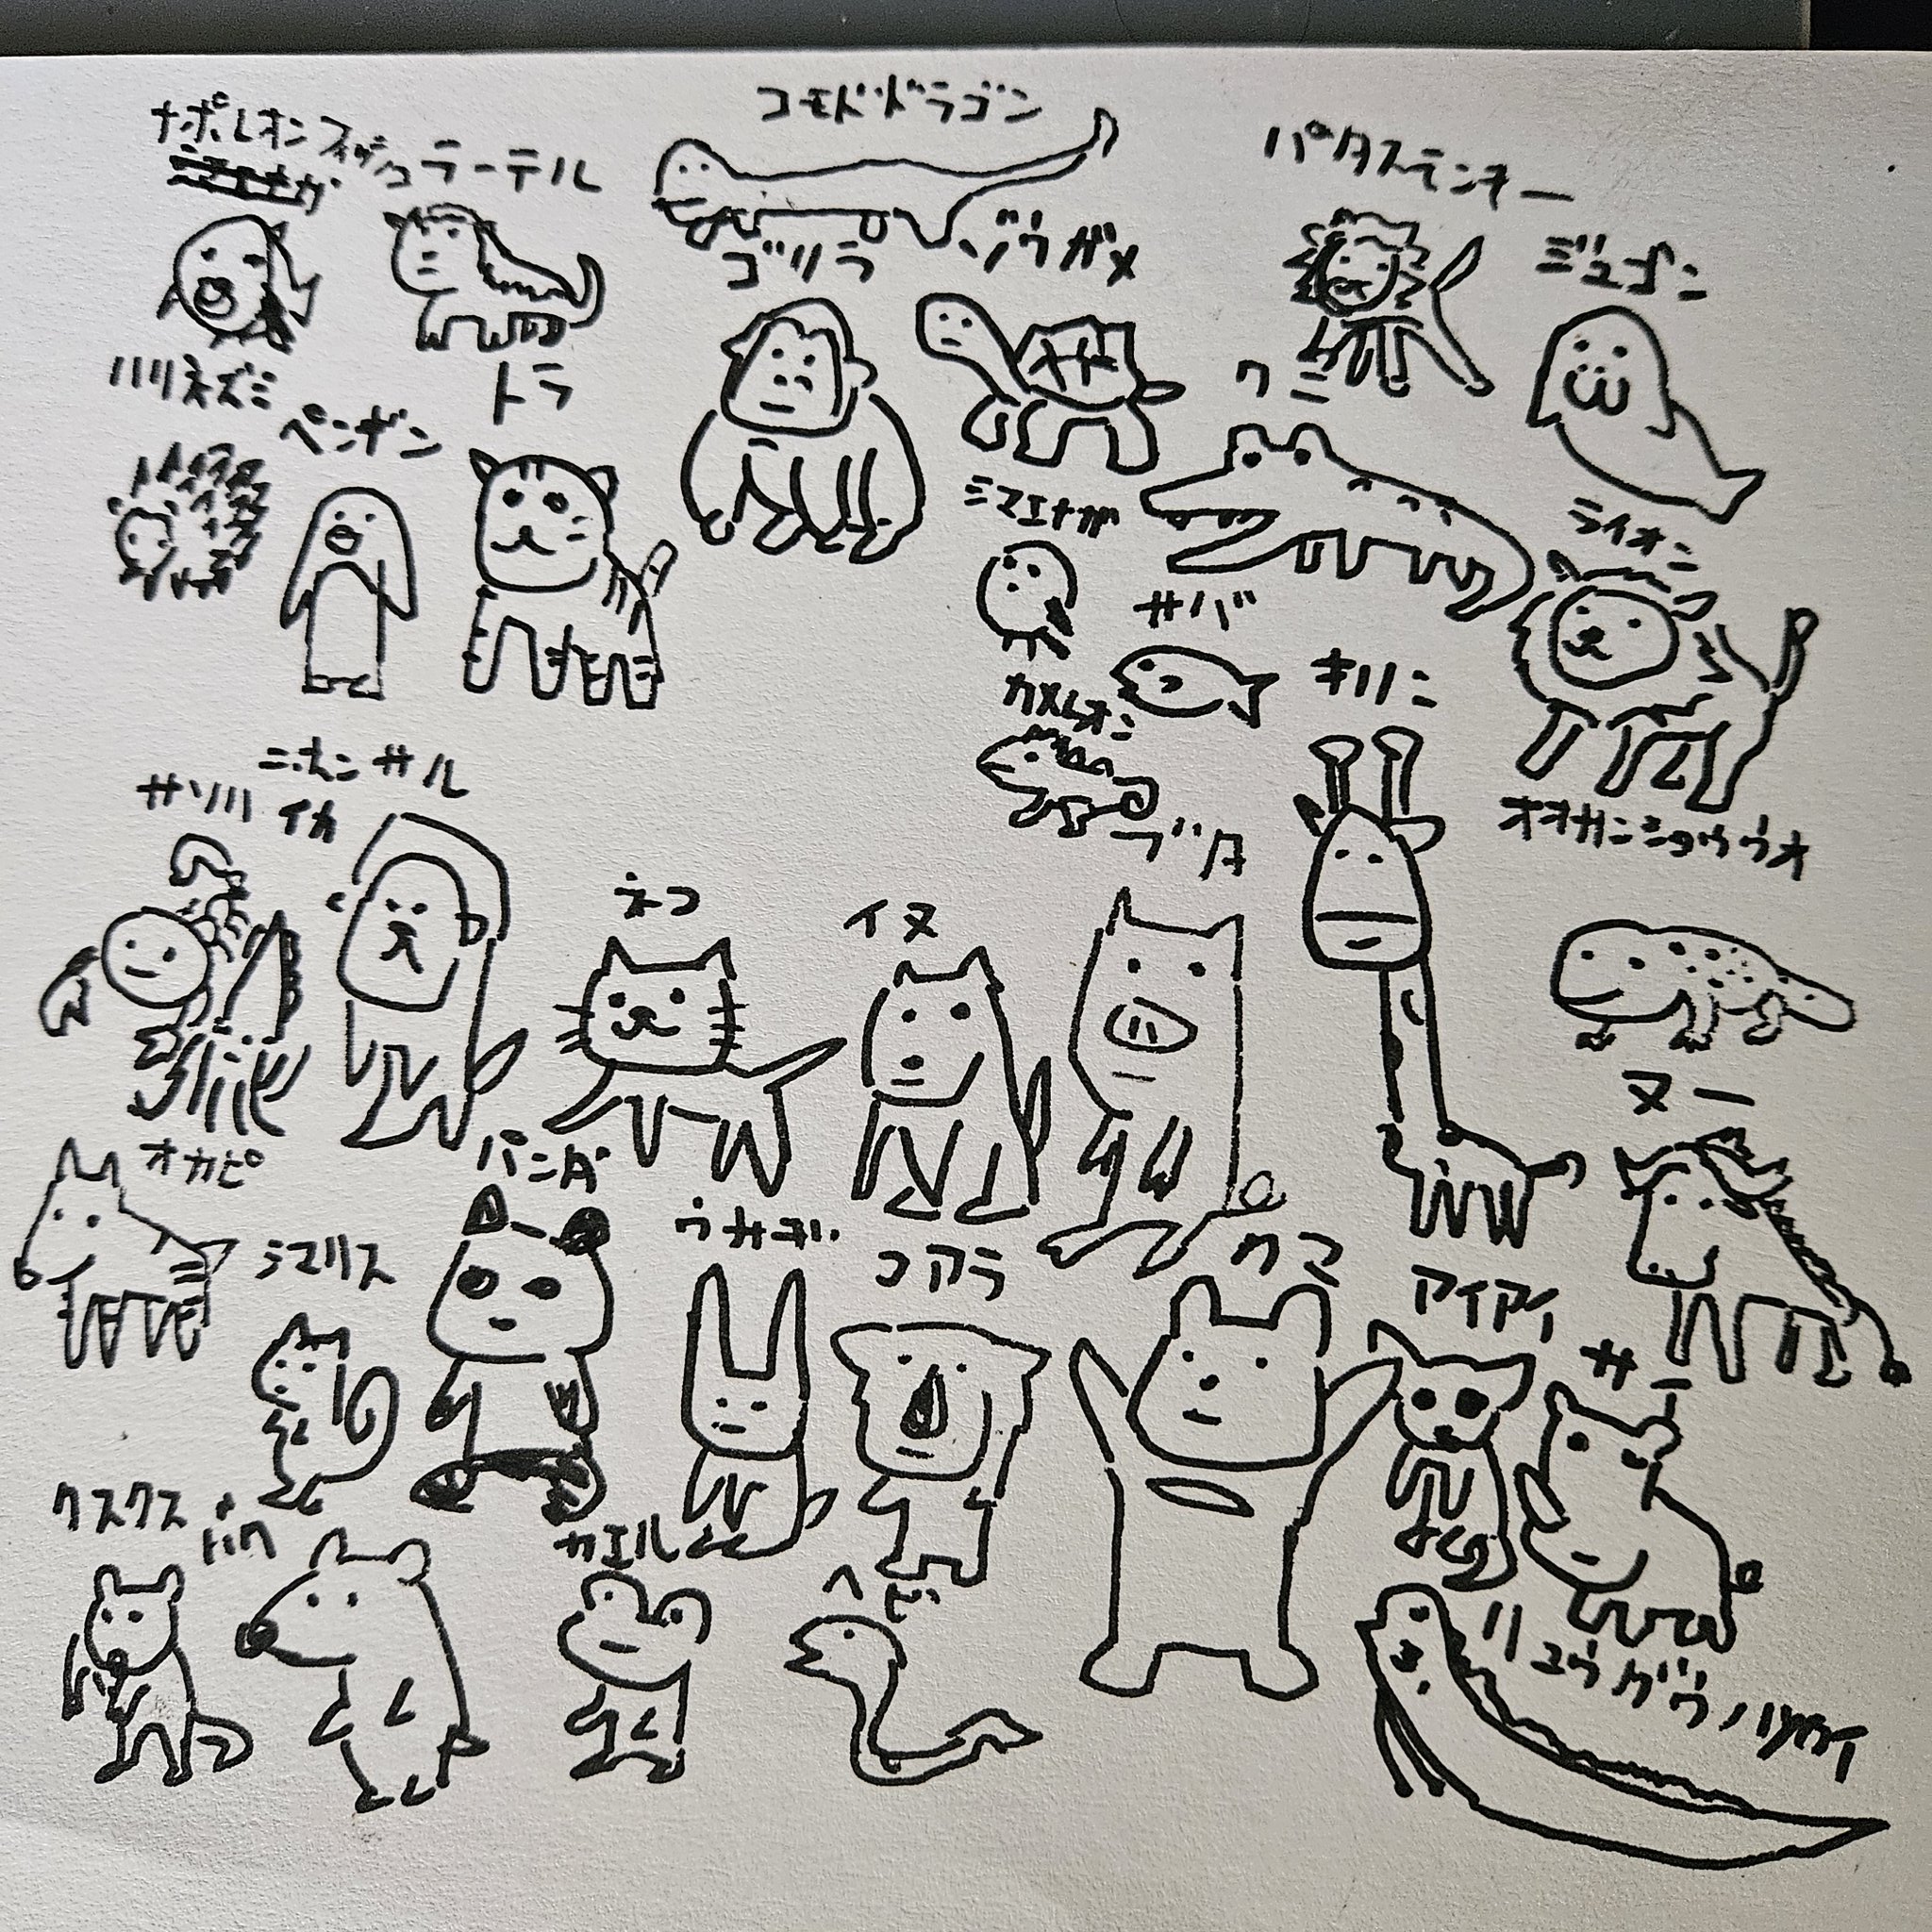 ナポレオンフィッシュ
ラーテル
コモドドラゴン
パタスモンキー
ゴリラ
ゾウガメ
ジュゴン
ハリネズミ
ペンギン
トラ
ワニ
シマエナガ
ライオン
サバ
カメレオン
キリン
ニホンザル
オオサンショウウオ
ブタ
ネコ
イヌ
ヌー
オカピ
パンダ
ウサギ
コアラ
クマ
シマリス
アイアイ
サイ
クスクス
バク
カエル
ヘビ
リュウグウノツカイ